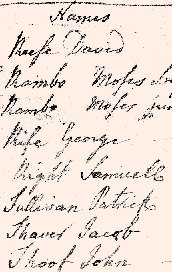 Names
Reese David
Rambo Moses Sr
Rambo Moses jun
Rike George
Right Samuell
Sullivan Patrick
Shaver Jacob
Shoof John